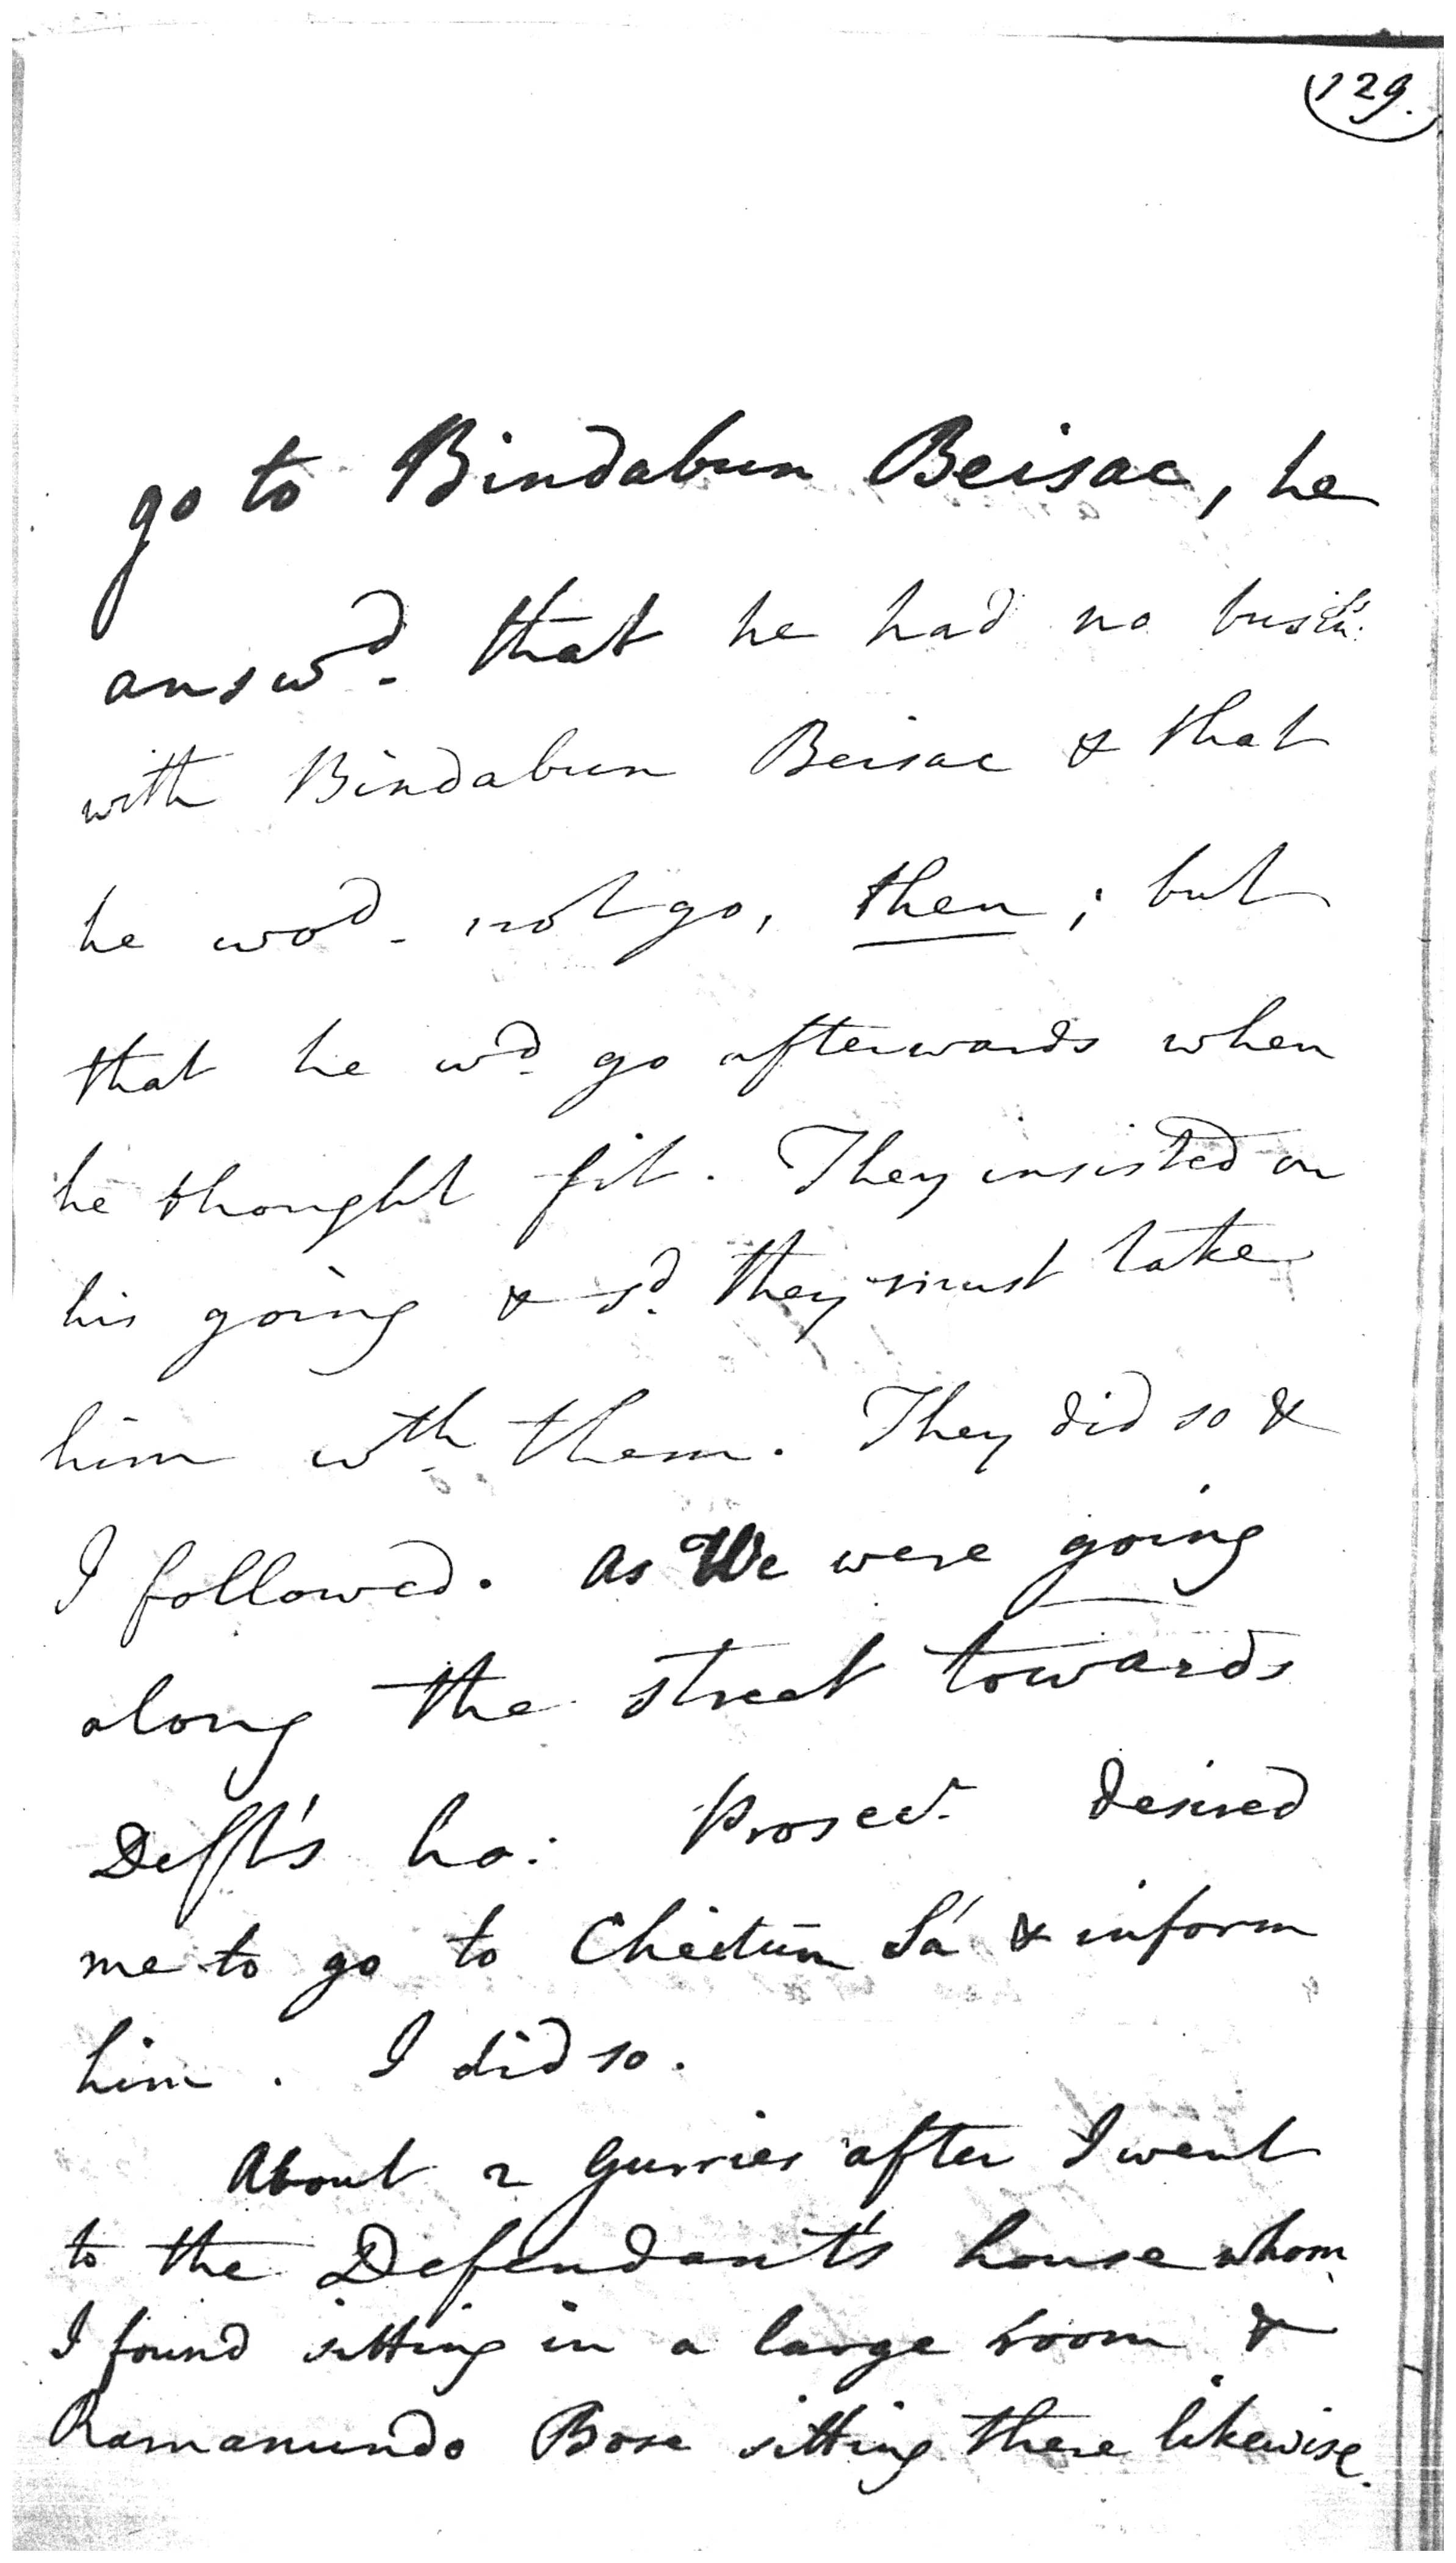 129.
go to Bindabun Beisac, he
answd. that he had no busin:s
with Bindabun Beisac & that
he wod. not go, then; but
that he wd. go afterwards when
he thought fit. They insisted on
his going & sd. they must take
him wth. them. They did so &
I followed. As We were going
along the street towards
Deft's ho: Prosecr. desired
me to go to Cheitun Sá & inform
him. I did so.
About 2 Gurries after I went
to the Defendant's house whom
I found sitting in a large room &
Ramanundo Bose sitting there likewise.